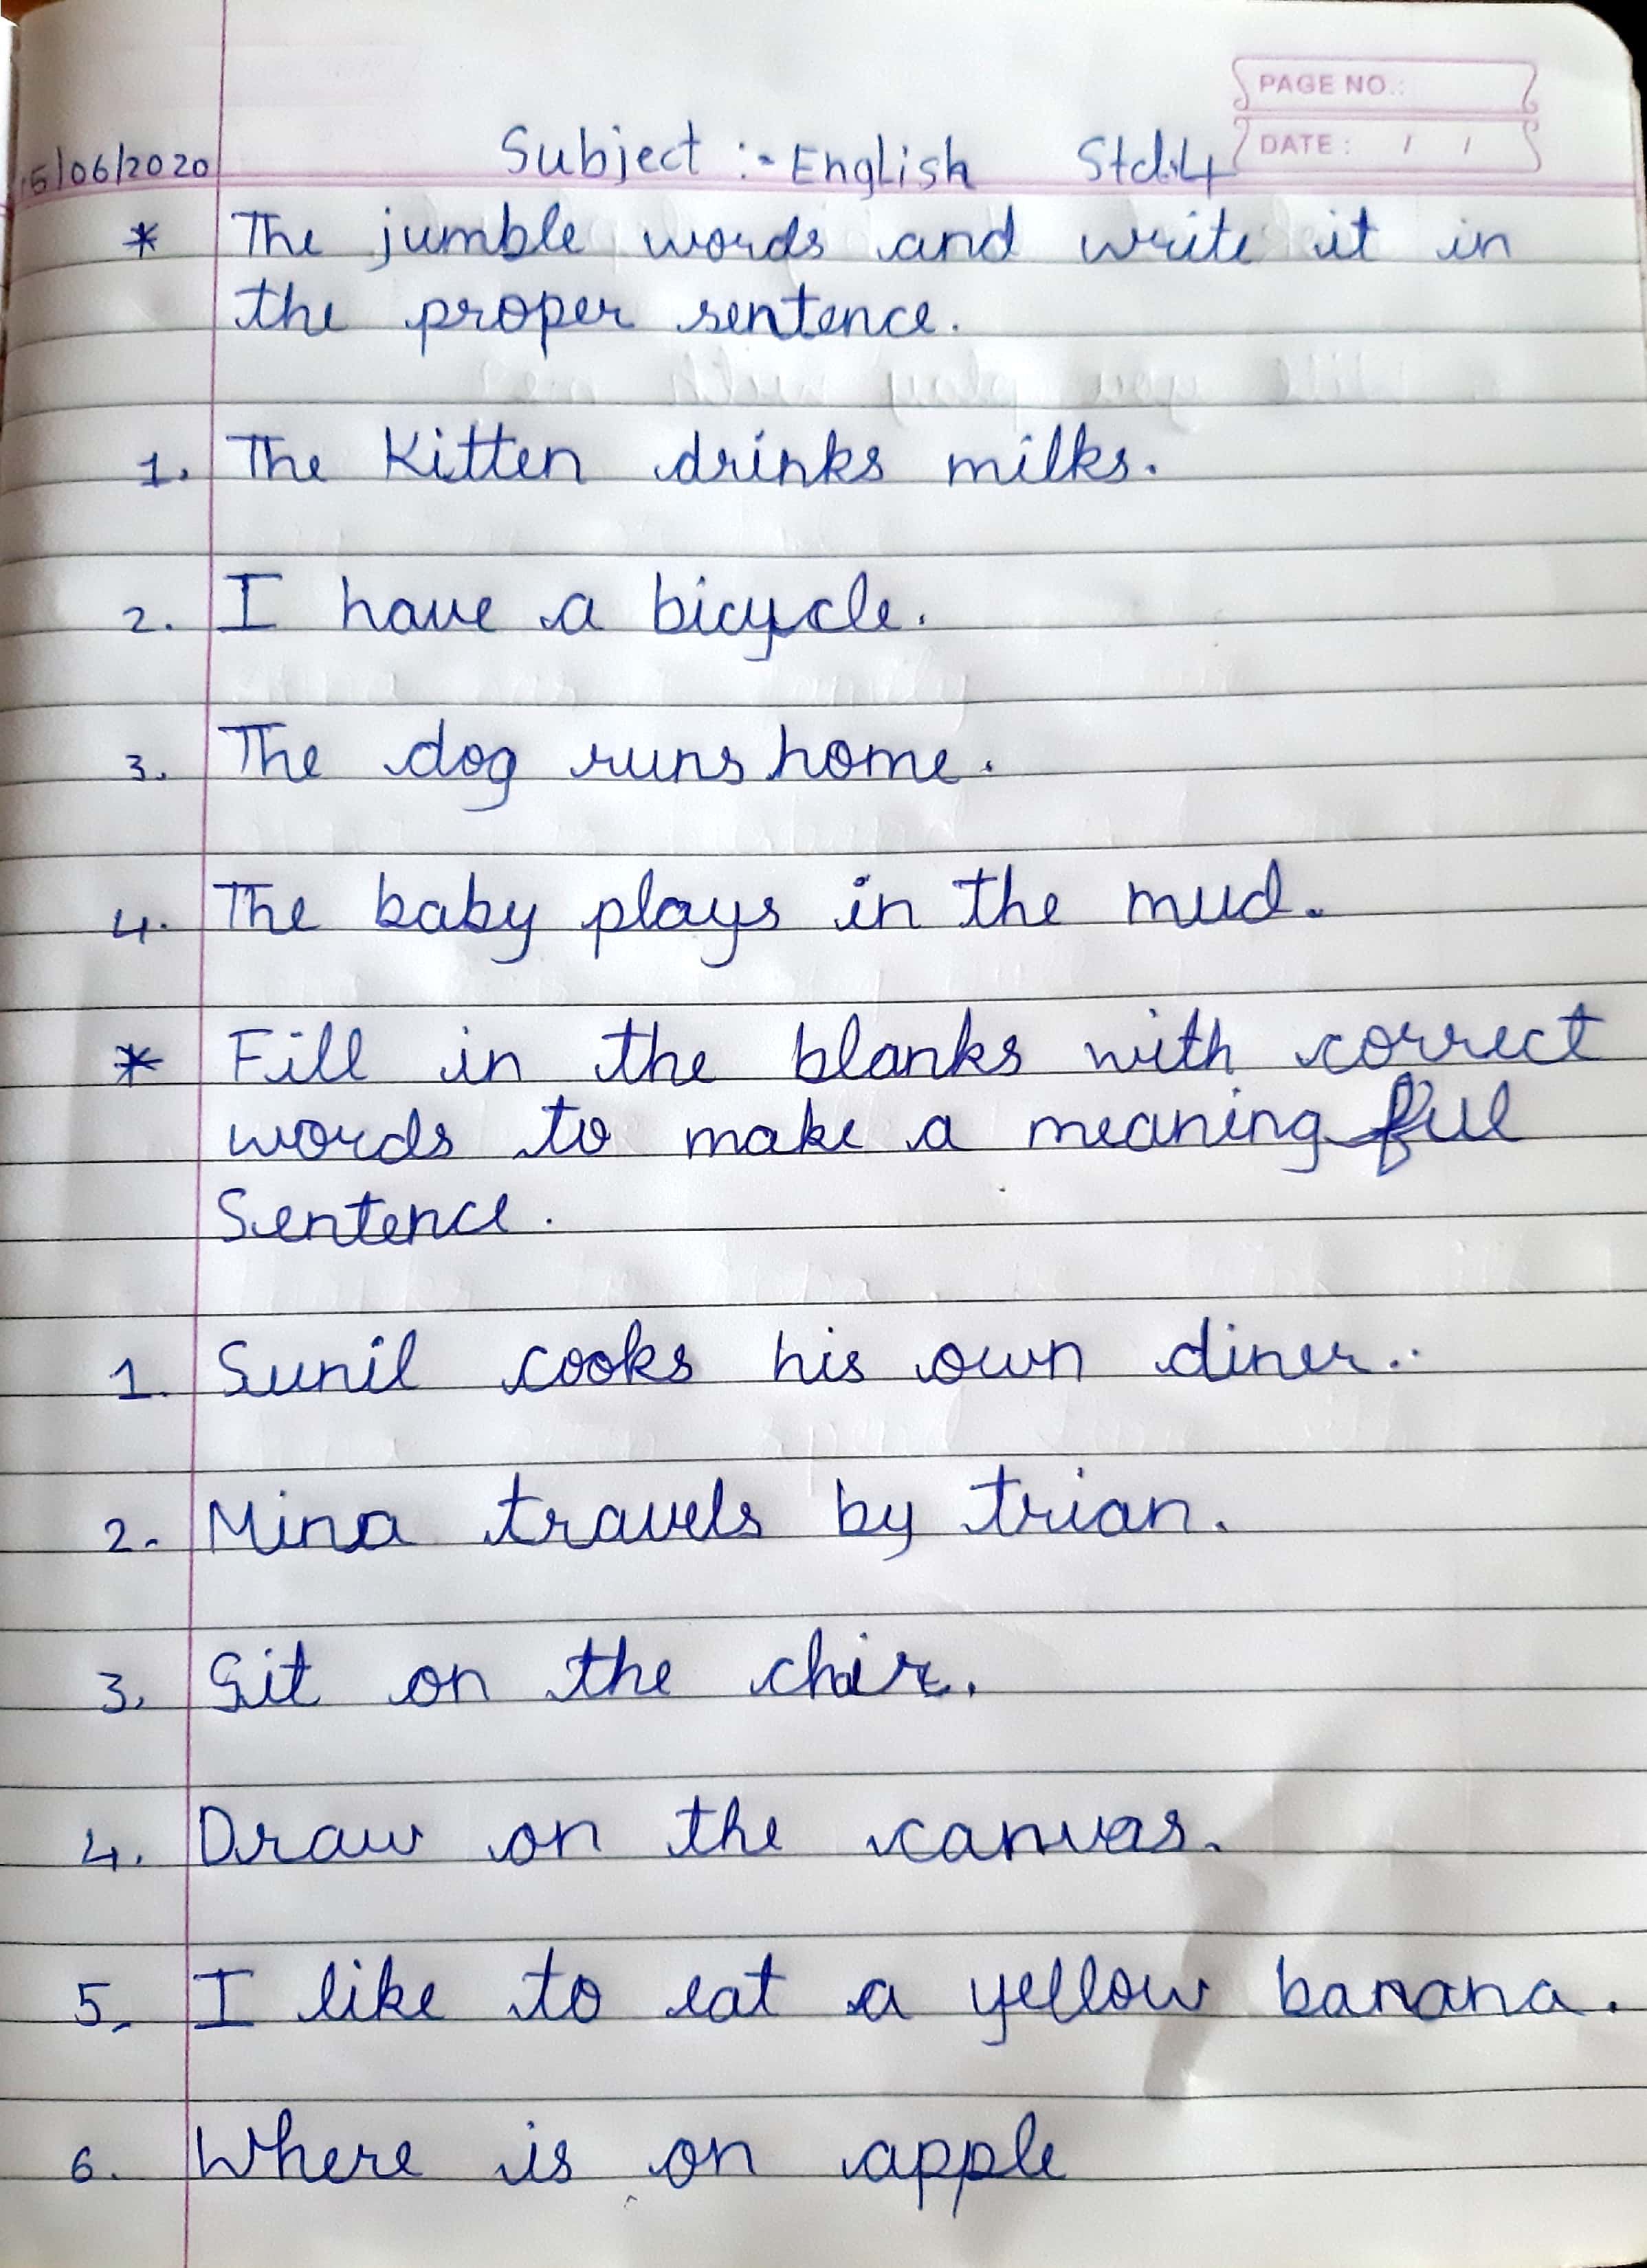 PAGE NO.:
DATE: / /
5/06/2020 Subject :- English Std:4
* The jumble words and write it in
the proper sentence.
1. The Kitten drinks milks.
2. I have a bicycle.
3. The dog runs home.
4. The baby plays in the mud.
* Fill in the blanks with correct
words to make a meaning ful
Sentence.
1. Sunil cooks his own diner..
2. Mina travels by trian.
3. Sit on the chair.
4. Draw on the canvas.
5. I like to eat a yellow banana.
6. Where is on apple